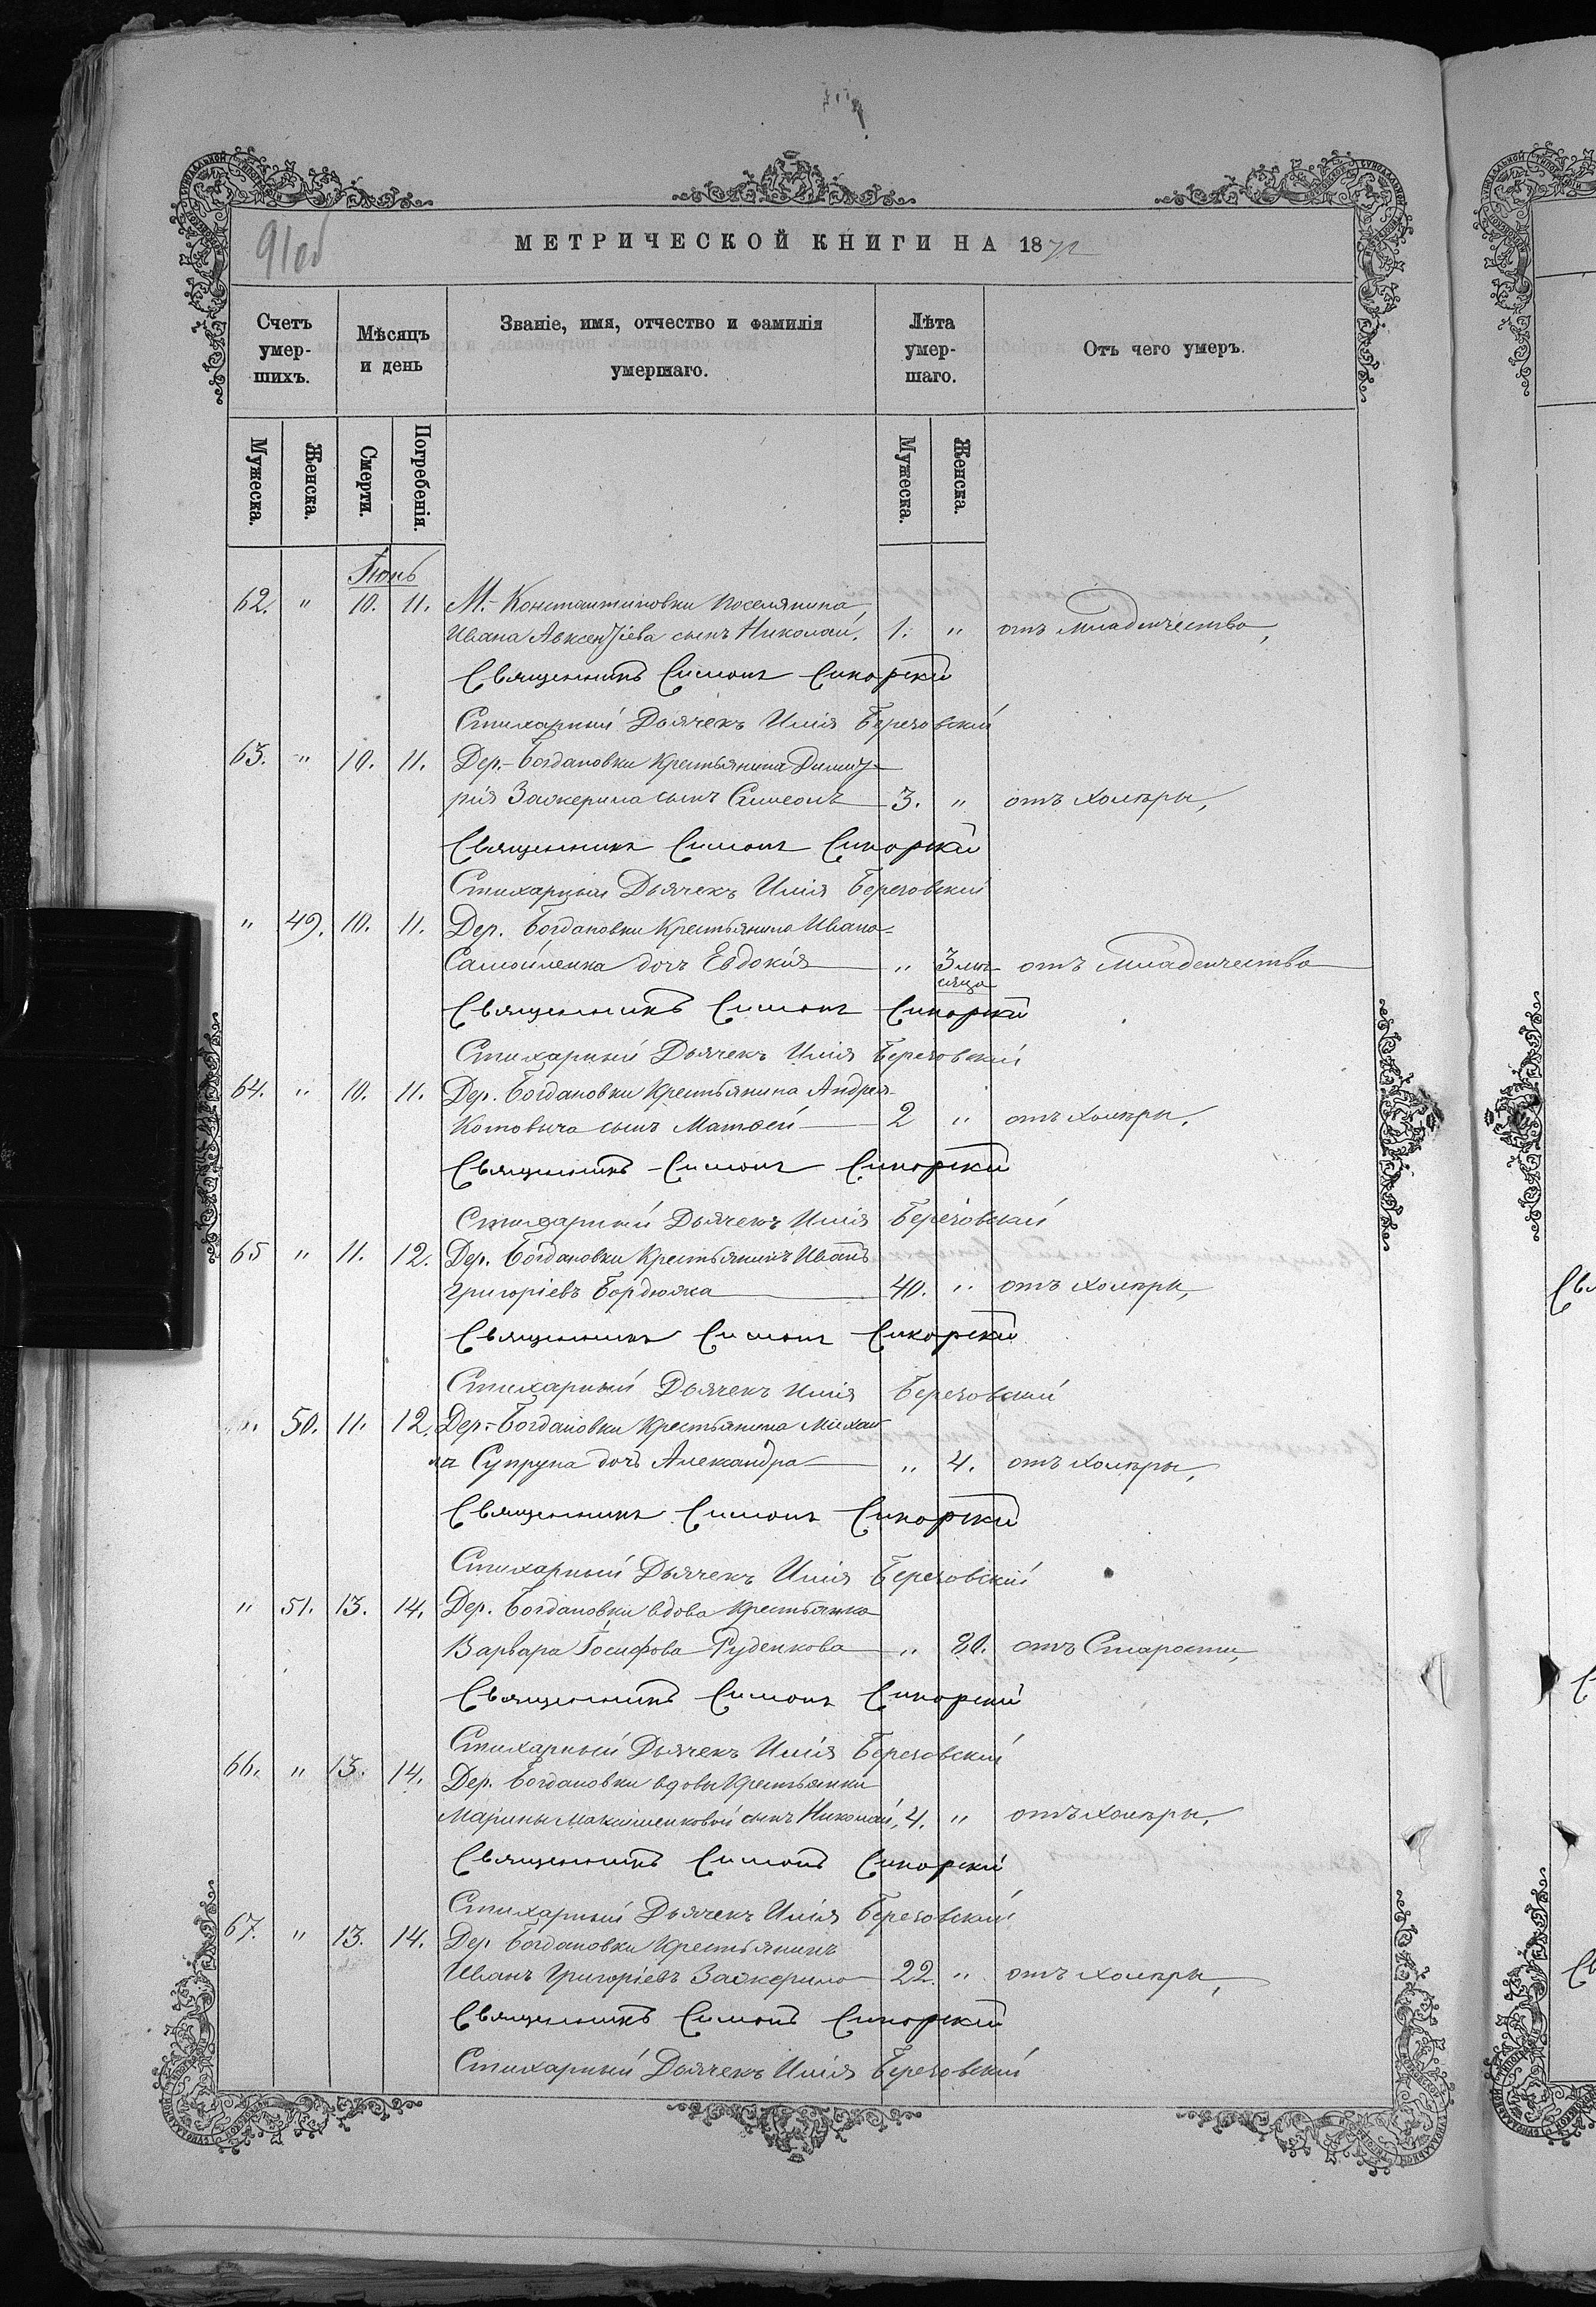 91об
МЕТРИЧЕСКОЙ КНИГИ НА 1872
Счетъ умер-шихъ.
Мѣсяцъ и день
Званіе, имя, отчество и фамилія умершаго.
Лѣта умер-шаго.
Отъ чего умеръ.
Мужеска. Женска. Смерти. Погребенія. Мужеска. Женска.
Іюнь
62. " 10. 11. М. Константиновки поселянина
Ивана Авксентіева сынъ Николай. 1. " отъ младенчества,
Священникъ Симонъ Сикорскій
Стихарный Дьячекъ Илія Березовскій
63. " 10. 11. Дер. Богдановки Крестьянина Димит-
рія Зажерила сынъ Симеонъ 3. " отъ холеры,
Священникъ Симонъ Сикорскій
Стихарный Дьячекъ Илія Березовскій
" 49. 10. 11. Дер. Богдановки Крестьянина Ивана
Самойленка дочь Евдокія " 3 мѣ-
сяца отъ младенчества
Священникъ Симонъ Сикорскій
Стихарный Дьячекъ Илія Березовскій
64. " 10. 11. Дер. Богдановки Крестьянина Андрея
Котовича сынъ Матѳей 2 " отъ холеры,
Священникъ Симонъ Сикорскій
Стихарный Дьячекъ Илія Березовскій
65 " 11. 12. Дер. Богдановки Крестьянинъ Иванъ
Григоріевъ Бордюжа 40. " отъ холеры,
Священникъ Симонъ Сикорскій
Стихарный Дьячекъ Илія Березовскій
" 50. 11. 12. Дер. Богдановки Крестьянина Михаи
ла Супруна дочь Александра " 4. отъ холеры,
Священникъ Симонъ Сикорскій
Стихарный Дьячекъ Илія Березовскій
" 51. 13. 14. Дер. Богдановки вдова Крестьянка
Варвара Іосифова Руденкова " 80. отъ Старости,
Священникъ Симонъ Сикорскій
Стихарный Дьячекъ Илія Березовскій
66. " 13. 14. Дер. Богдановки вдовы Крестьянки
Марины Максименковой сынъ Николай, 4. " отъ холеры,
Священникъ Симонъ Сикорскій
Стихарный Дьячекъ Илія Березовскій
67. " 13. 14. Дер Богдановки Крестьянинъ
Иванъ Григоріевъ Зажерило 22. " отъ холеры,
Священникъ Симонъ Сикорскій
Стихарный Дьячекъ Илія Березовскій